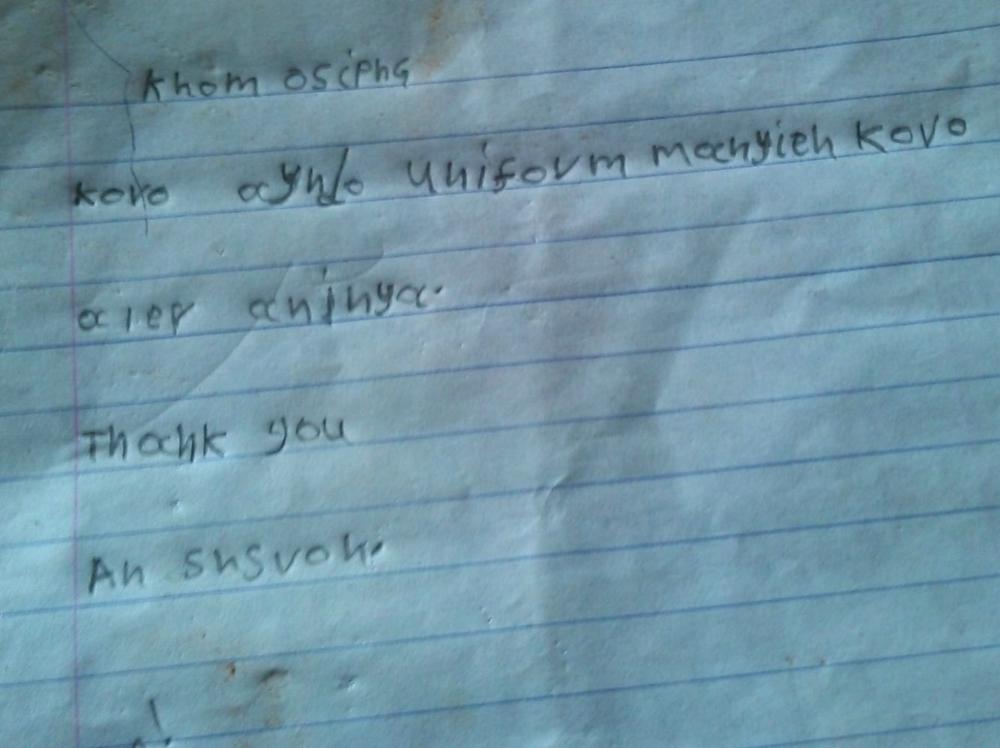 Khom osiepha
koro oyndo uniform manyien koro
aier aninya.
Thank you
An snsvon.